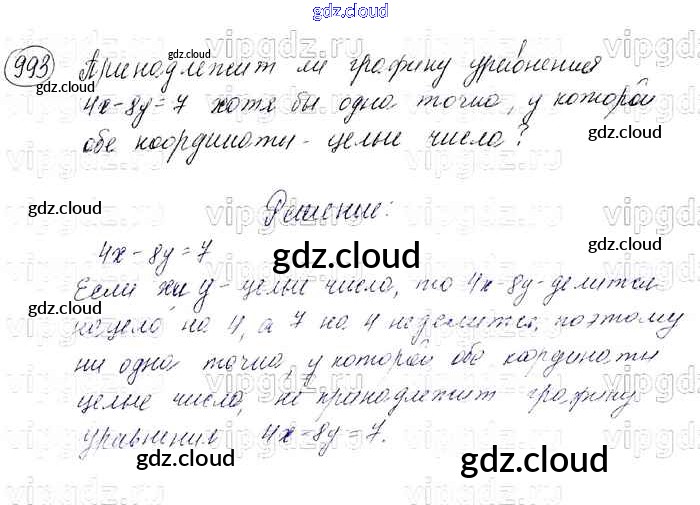 gdz.cloud
993 Принадлежит ли графику уравнения
4x-8y=7 хотя бы одна точка, у которой
обе координаты - целые числа?
Решение:
4x-8y=7
Если x и y - целые числа, то 4x-8y-делится
нацело на 4, а 7 на 4 не делится, поэтому
ни одна точка, у которой обе координаты
целые числа, не принадлежит графику
уравнения 4x-8y=7.
gdz.cloud
gdz.cloud
gdz.cloud
gdz.cloud
gdz.cloud
gdz.cloud
gdz.cloud
gdz.cloud
gdz.cloud
gdz.cloud
gdz.cloud